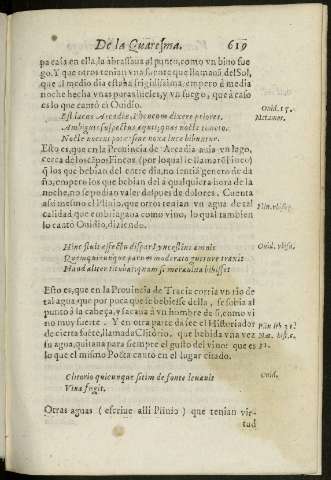 De la Quaresma. 619
pa casa en ella, la abrassaua al punto, como vn biuo fue
go. Y que otros tenian vna fuente que llamauã del Sol,
que al medio dia estaua frigidissima, empero à media
noche hecha vnas
es lo que cantò el Ouidio.
Est lacus Arcadiæ, Pheneum dixere priores,
Ambiguis suspectus aquis, quas nocte timeto.
Nocte nocent potæ, sine noxa luce bibuntur.
Ouid. 15.
Metamor.
Esto es, que en la Prouincia de Arcadia auia vn lago,
cerca de los campos Fincos (por lo qual se llamaua Finco)
q̃ los que bebian del entre dia, no sentiã genero de da
ño, empero los que bebian del à qualquiera hora de la
noche, no se podian valer despues de dolores. Cuenta
assi mesmo el Plinio, que otros tenian vn agua de tal
calidad que embriagaua como vino, lo qual tambien
lo cantò Ouidio, diziendo.
Plin. vbi sup.
Huic fluit effectu dispar Lyncestius amnis
Quem quicunque parum moderato gutture traxit
Haud aliter titubat, quam si mera vina bibisset
Ouid. vbi su.
Esto es, que en la Prouincia de Tracia corria vn rio de
tal agua que por poca que se bebiesse della, se subia al
punto à la cabeça, y sacaua à vn hombre de si, como vi
no muy fuente. Y en otra parte dize el Historiador
de cierta fuẽte, llamada Clitorio, que bebida vna vez
su agua, quitaua para siempre el gusto del vino: que es
lo que el mismo Poeta cantò en el lugar citado.
Plin. lib. 31.
Nat. hist. c.
Clitorio quicunque sitim de fonte leuauit
Vina fugit.
Ouid.
Otras aguas (escriue alli Plinio) que tenian vir-
tud